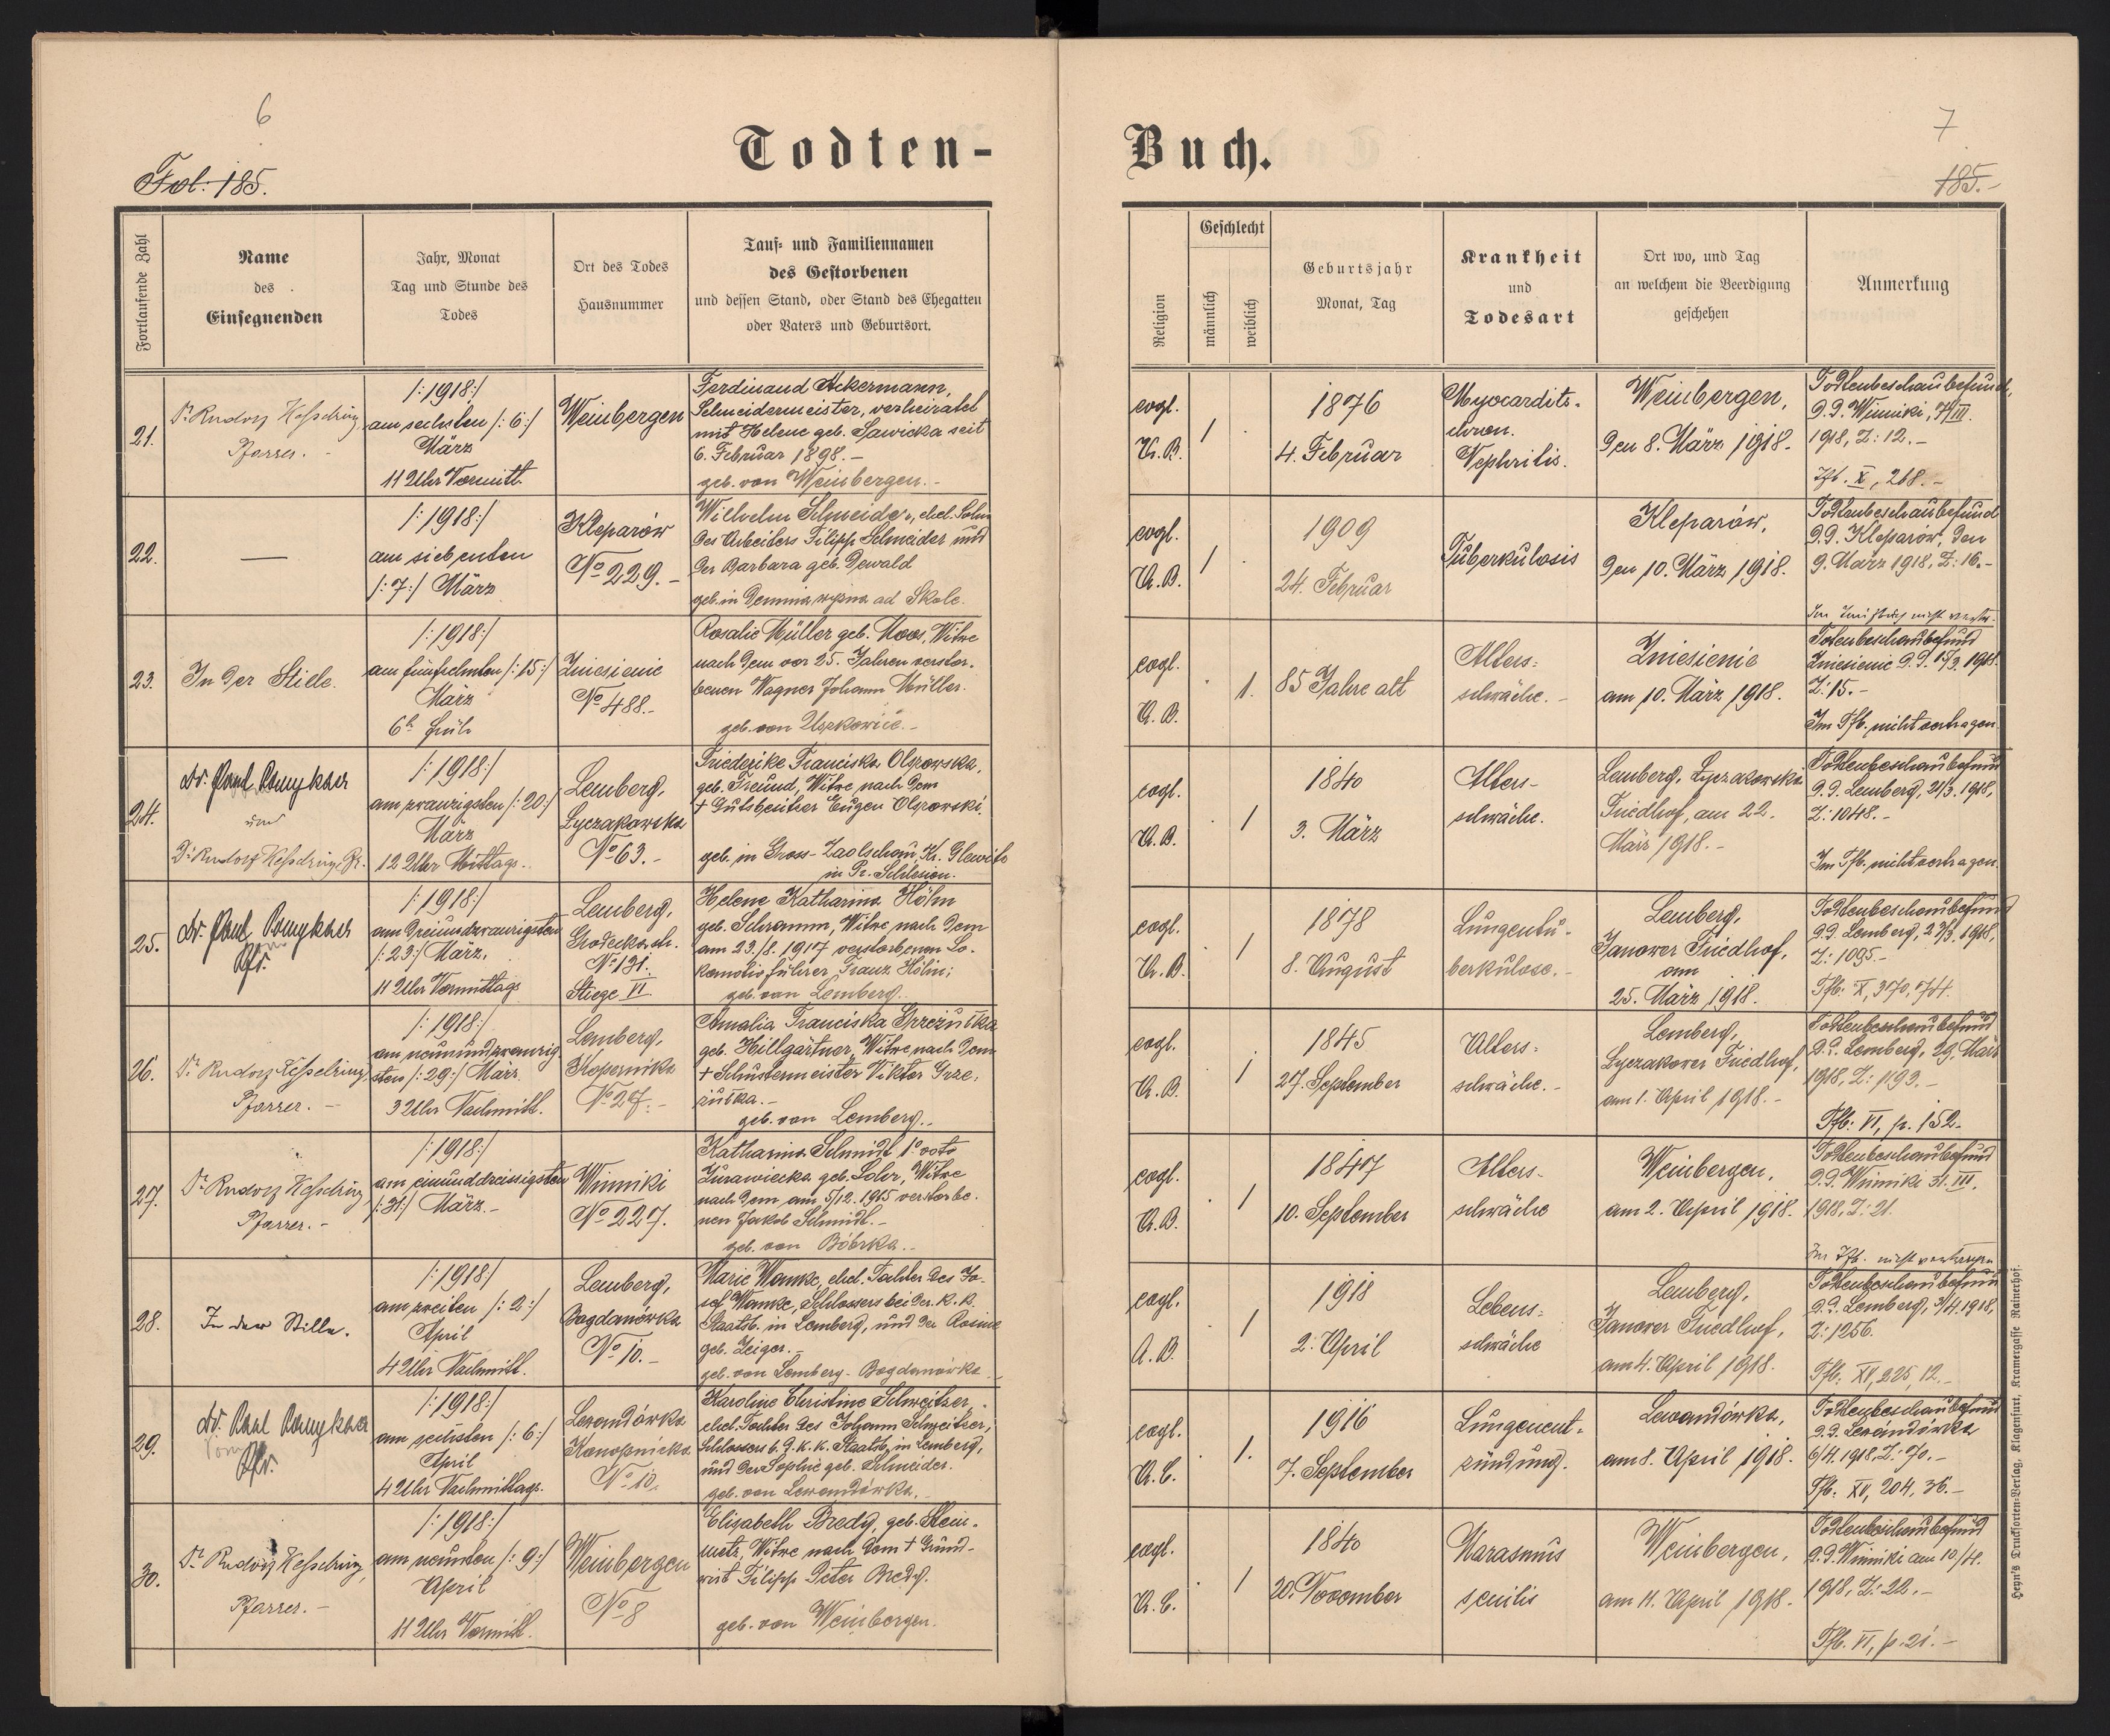 6
Todten-
Fol. 185.
Fortlaufende Zahl
Name
des
Einsegnenden
Jahr, Monat
Tag und Stunde des
Todes
Ort des Todes
Hausnummer
Tauf- und Familiennamen
des Gestorbenen
und dessen Stand, oder Stand des Ehegatten
oder Vaters und Geburtsort.
21.
Dr Rudolf Kesselring,
Pfarrer. -
/:1918:/
am sechsten /:6:/
März
11 Uhr Vormitt.
Weinbergen
Ferdinand Ackermann,
Schneidermeister, verheiratet
mit Helene geb. Sawicka seit
6. Februar 1898. -
geb. von Weinbergen. -
22.
—
/:1918:/
am siebenten
/:7:/ März
Kleparów
No 229. -
Wilhelm Schneider, ehel. Sohn
des Arbeiters Filipp Schneider und
der Barbara geb. Dewald
geb. in Demnia wyzna ad Skole.
23.
In der Stille.
/:1918:/
am fünfzehnten /:15:/
März
6h früh
Zniesienie
No 488. -
Rosalie Müller geb. Moos, Witwe
nach dem vor 25. Jahren verstor-
benen Wagner Johann Müller.
geb. von Uszkowice. -
24.
dr. Paul Pomykacz
und
Dr Rudolf Kesselring, Pf.
/:1918:/
am zwanzigsten /:20:/
März
12 Uhr Mittags.
Lemberg,
Lyczakowska
No 63. -
Friederike Franciska Olszowska,
geb. Freund, Witwe nach dem
+ Gutsbesitzer Eugen Olszowski.
geb. in Gross-Zaolschau Kr. Glewitz
in Pr. Schlesien.
25.
dr. Paul Pomykacz
Pfr.
/:1918:/
am dreiundzwanzigsten
/:23:/ März,
11 Uhr Vormittags
Lemberg,
Grodeckastr.
No 131.
Stiege VI
Helene Katharina Höhn
geb. Schramm, Witwe nach dem
am 23./8. 1917 verstorbenen Lo-
komotivführer Franz Höhn;
geb. von Lemberg.
26.
Dr Rudolf Kesselring
Pfarrer. -
/:1918:/
am neunundzwanzig-
sten /:29:/ März
3 Uhr Nachmitt.
Lemberg,
Kopernika
No 27. -
Amalia Franciska
geb. Hillgärtner, Witwe nach dem
+ Schustermeister Viktor
geb. von Lemberg.
27.
Dr Rudolf Kesselring
Pfarrer. -
/:1918:/
am einunddreissigsten
/:31:/ März. -
Winniki
No 227.
Katharina Schmidt 1o voto
Żurawiecka geb. Soler, Witwe
nach dem am 5/12. 1915 verstorbe-
nen Jakob Schmidt. -
geb. von Bóbrka. -
28.
In der Stille.
/:1918:/
am zweiten /:2:/
April
4 Uhr Nachmitt.
Lemberg,
Bogdanówka
No 10. -
Marie Wanke, ehel. Tochter des Jo-
sef Wanke, Schlossers bei der k. k.
Staatsb. in Lemberg, und der Rosine
geb. Zeiger. -
geb. von Lemberg-Bogdanówka
29.
dr. Paul Pomykacz
Pfr.
/:1918:/
am sechsten /:6:/
April
4 Uhr Nachmittags.
Lewandówka
Konopnicka
No 10.
Karoline Christine Schweitzer,
ehel. Tochter des Johann Schweitzer,
Schlossers b. d. k. k. Staatsb. in Lemberg,
und der Sophie geb. Schneider.
geb. von Lewandówka.
30.
Dr Rudolf Kesselring,
Pfarrer. -
/:1918:/
am neunten /:9:/
April
11 Uhr Vormitt.
Weinbergen
No 8
Elisabeth Bredy, geb. Stein-
metz, Witwe nach dem + Grund-
wirt Filipp Peter Bredy.
geb. von Weinbergen.
Buch.
7
185. -
Religion
Geschlecht
männlich
weiblich
Geburtsjahr
Monat, Tag
Krankheit
und
Todesart
Ort wo, und Tag
an welchem die Beerdigung
geschehen
Anmerkung
evgl.
A. B.
1
1876
4. Februar
Myocardits.
chron.
Nephritis.
Weinbergen,
den 8. März 1918.
Todtenbeschaubefund,
d.d. Winniki, 7/III.
1918, Z: 12. -
Tfb. X, 268. -
evgl.
A. B.
1
1909
24. Februar
Tuberkulosis
Kleparów,
den 10. März 1918.
Todtenbeschaubefund
d.d. Kleparów, den
9. März 1918, Z: 16. -
evgl.
A. B.
1.
85 Jahre alt
Alters-
schwäche. -
Zniesienie
am 10. März 1918.
Totenbeschaubefund
Zniesienie d.d. 15/3. 1918.
Z: 15. -
Im Tfb. nicht vertragen.
evgl.
A. B.
1
1840
3. März
Alters-
schwäche.
Lemberg, Lyczakowski
Friedhof, am 22.
März 1918. -
Todtenbeschaubefund
d.d. Lemberg, 21/3. 1918,
Z: 1048. -
Im Tfb. nicht vertragen.
evgl.
A. B.
1
1878
8. August
Lungentu-
berkulose. -
Lemberg,
Janower Friedhof,
am
25. März 1918.
Todtenbeschaubefund
d.d. Lemberg, 23/3. 1918,
Z: 1095. -
Tfb: X, 370, 574.
evgl.
A. B.
1
1845
27. September
Alters-
schwäche. -
Lemberg,
Lyczakower Friedhof,
am 1. April 1918. -
Todtenbeschaubefund
d.d. Lemberg, 29. März
1918, Z: 1193. -
Tfb: VI, p. 152.
evgl.
A. B.
1
1847
10. September
Alters-
schwäche
Weinbergen,
am 2. April 1918.
Todtenbeschaubefund
d.d. Winniki 31. III.
1918, Z: 21.
Im Tfb. nicht vertragen
evgl.
A. B.
1
1918
2. April
Lebens-
schwäche
Lemberg,
Janower Friedhof,
am 4. April 1918.
Todtenbeschaubefund
d.d. Lemberg, 3/4. 1918,
Z: 1256.
Tfb: XV, 225, 12. -
evgl.
A. C.
1.
1916
7. September
Lungenent-
zündung.
Lewandówka,
am 8. April 1918.
Todtenbeschaubefund
d.d. Lewandówka
6/4. 1918, Z: 70. -
Tfb: XV, 204, 36. -
evgl.
A. C.
1
1840
20. November
Marasmus
senilis
Weinbergen,
am 11. April 1918.
Todtenbeschaubefund
d.d. Winniki am 10./4.
1918, Z: 22. -
Tfb. VI, p. 21. -
Heyn's Drucksorten-Verlag, Klagenfurt, Kramergasse Rainerhof.